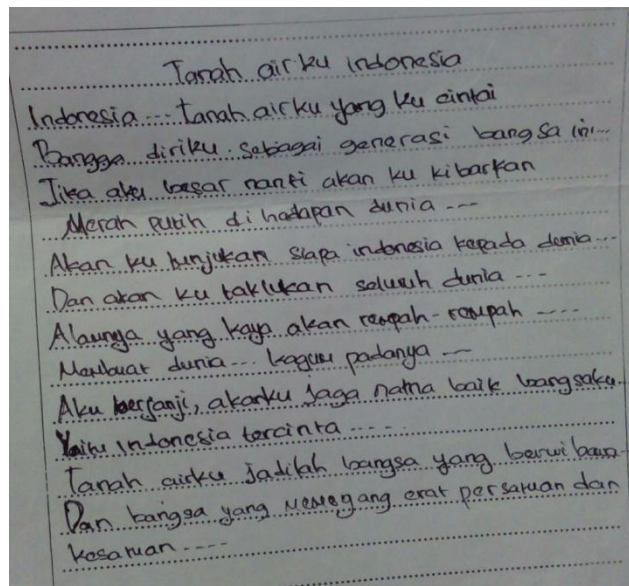 Tanah airku indonesia
Indonesia... tanah airku yang ku cintai
Bangga diriku sebagai generasi bangsa ini...
Jika aku besar nanti akan ku kibarkan
Merah putih di hadapan dunia ---
Akan ku tunjukan siapa indonesia kepada dunia...
Dan akan ku taklukan seluruh dunia ---
Alamnya yang kaya akan rempah-rempah ----
Membuat dunia... kagum padanya --
Aku berjanji, akanku jaga nama baik bangsaku..
Yaitu indonesia tercinta ----
Tanah airku jadilah bangsa yang berwibawa
Dan bangsa yang memegang erat persatuan dan
kesatuan ----